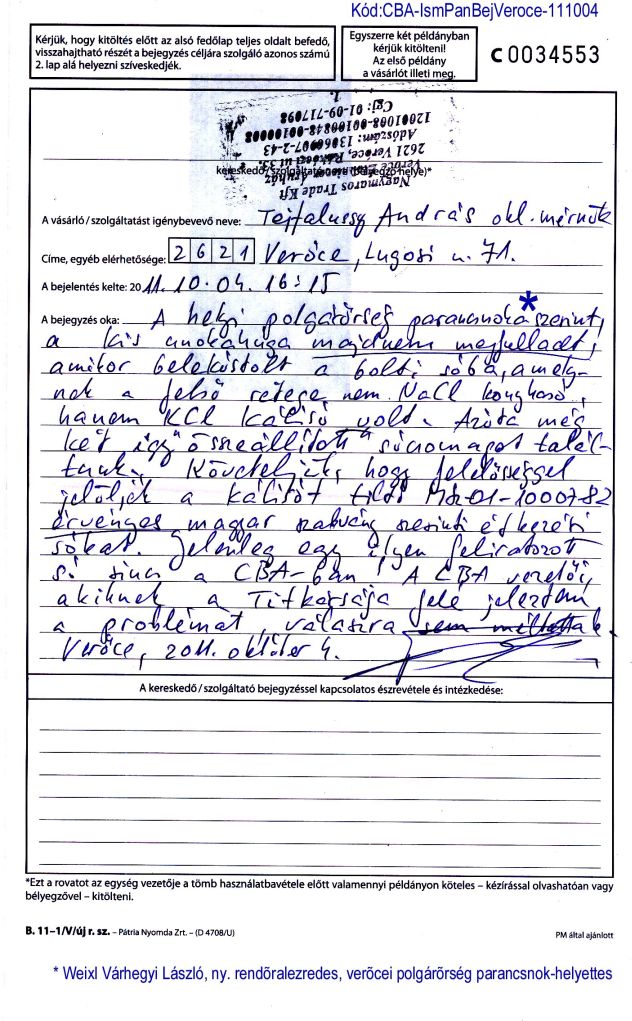 Kód:CBA-IsmPanBejVeroce-111004
Kérjük, hogy kitöltés előtt az alsó fedőlap teljes oldalt befedő,
visszahajtható részét a bejegyzés céljára szolgáló azonos számú
2. lap alá helyezni szíveskedjék.
Egyszerre két példányban
kérjük kitölteni!
Az első példány
a vásárlót illeti meg.
C 0034553
1.
Cgj: 01-09-717098
12001008-00100848-00100008
Adószám: 13060007-2-43
2621 Verőce, Rákóczi út 33.
Nagymaros Trade Kft
kereskedő/szolgáltató neve (bejegyző helye)*
A vásárló/szolgáltatást igénybevevő neve: Tejfalussy András okl. mérnök
Címe, egyéb elérhetősége: 2621 Verőce, Lugosi u. 71.
A bejelentés kelte: 2011. 10. 04. 16:15
A bejegyzés oka: A helyi polgárőrség parancsnoka * szerint,
a kis unokahúga majdnem megfulladt,
amikor belekóstolt a bolti sóba, amely-
nek a felső rétege nem NaCl konyhasó,
hanem KCl kálisó volt. Azóta még
két így "összeállított" sócsomagot talál-
tunk. Követeljük, hogy felelőséggel
jelöljék a kálisót tiltó MSZ-01-10007-82
érvényes magyar szabvány szerinti étkezési
sókat. Jelenleg egy ilyen feliratozott
só sincs a CBA-ban. A CBA vezetői,
akiknek a Titkársága felé jeleztem
a problémát, válaszra sem méltattak.
Verőce, 2011. október 4.
A kereskedő/szolgáltató bejegyzéssel kapcsolatos észrevétele és intézkedése:
*Ezt a rovatot az egység vezetője a tömb használatbavétele előtt valamennyi példányon köteles – kézírással olvashatóan vagy
bélyegzővel – kitölteni.
B. 11–1/V/új r. sz. – Pátria Nyomda Zrt. – (D 4708/U)
PM által ajánlott
* Weixl Várhegyi László, ny. rendőralezredes, verőcei polgárőrség parancsnok-helyettes